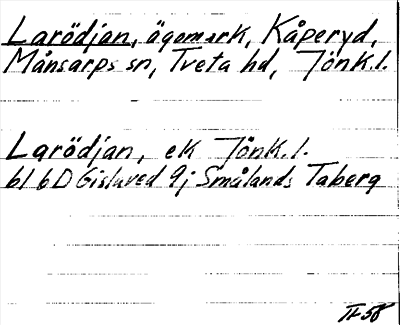 Larödjan, ägomark, Kåperyd,
Månsarps sn, Tveta hd, Jönk.l.
Larödjan, ek Jönk.l.
bl 6D Gislaved 9j Smålands Taberg
IT-58